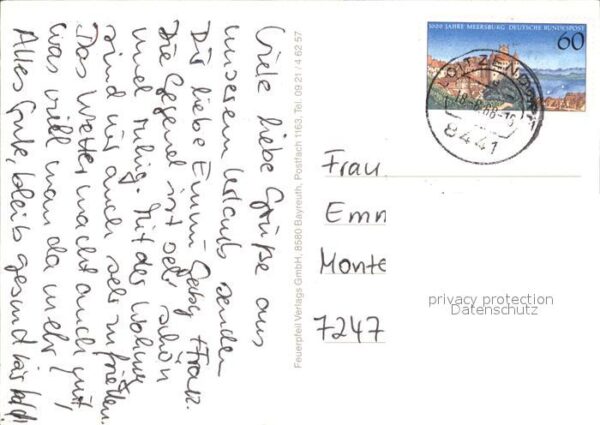 Viele liebe Grüße aus
unserem Urlaub senden
Dir liebe Emmi Geby + Franz.
Die Gegend ist sehr schön
und ruhig. Mit der Wohnung
sind wir auch sehr zufrieden.
Das Wetter macht auch mit,
was will man da mehr!
Alles Gute, bleib gesund bis bald!
Feuerpfeil Verlags GmbH, 8580 Bayreuth, Postfach 1163, Tel. 09 21 / 4 62 57
1000 JAHRE MEERSBURG DEUTSCHE BUNDESPOST
60
8441
Frau
Emm
Monte
7247
privacy protection
Datenschutz